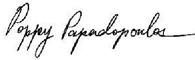 Poppy Papadopoulos